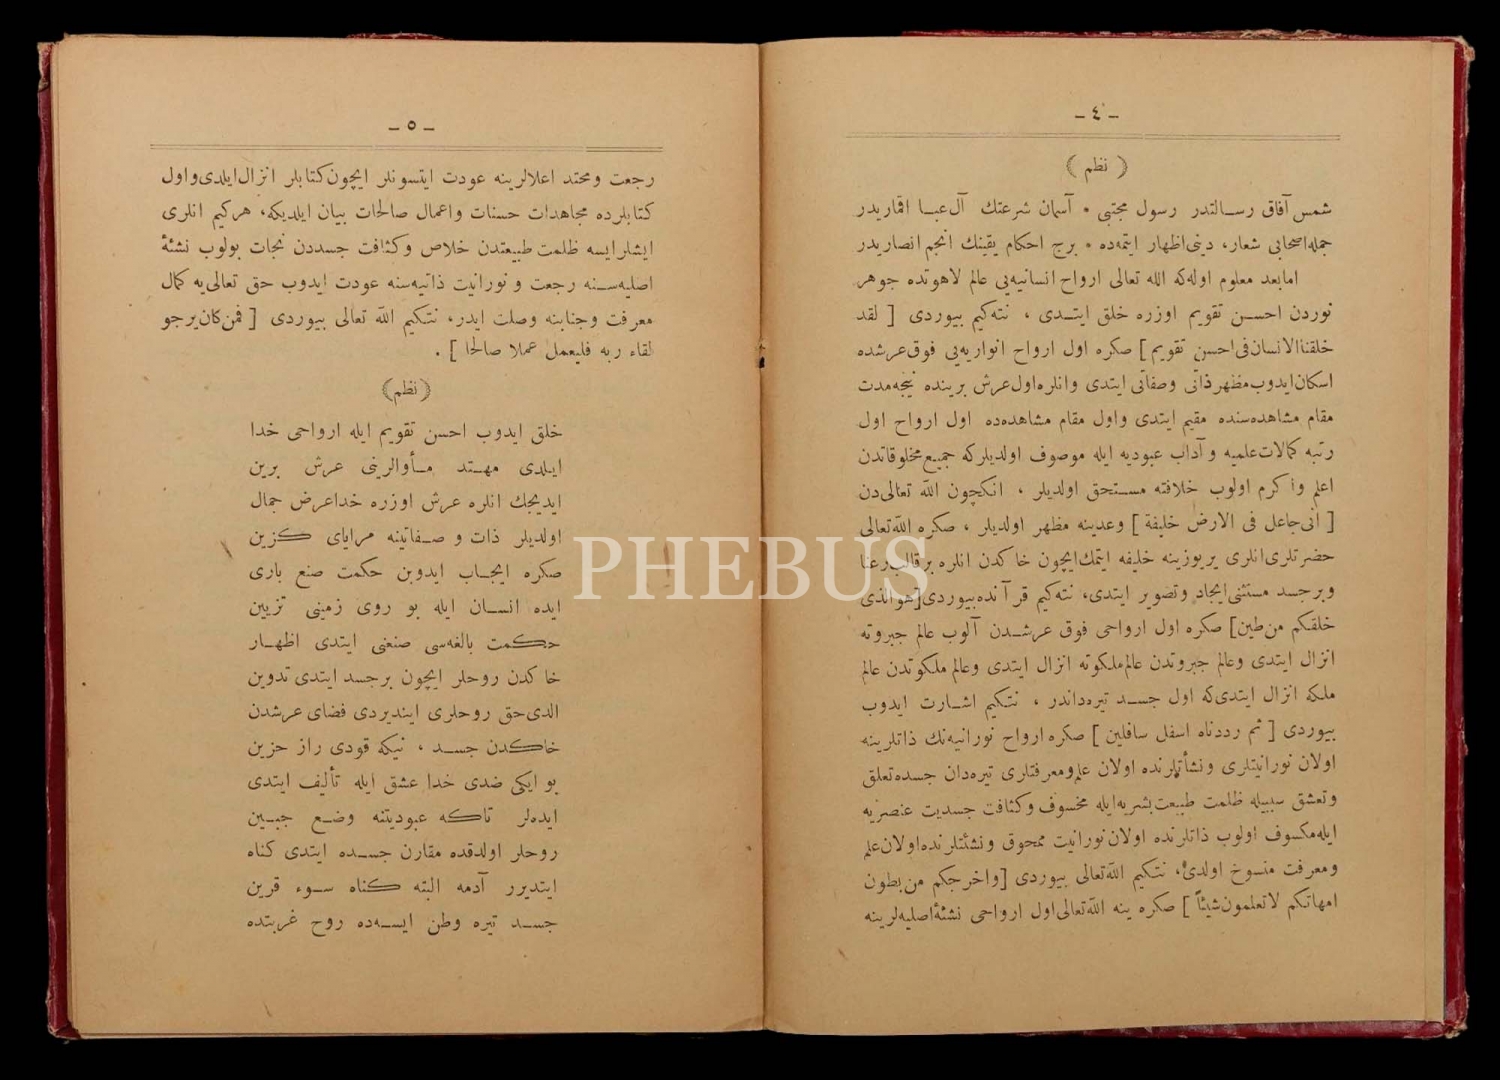 – ٤ –
﴿ نظم ﴾
شمس آفاق رسالتدر رسول مجتبی * آسمان شرعتك آل عبا اقماریدر
جمله اصحابی شعار، دینی اظهار ایتمه‌ده * برج احكام یقینك انجم انصاریدر
امابعد معلوم اوله‌كه الله تعالی ارواح انسانیه‌یی عالم لاهوتده جوهر
نوردن احسن تقویم اوزره خلق ایتدی ، نته‌كیم بیوردی [ لقد
خلقنا الانسان فی احسن تقویم ] صكره اول ارواح انواریه‌یی فوق عرشده
اسكان ایدوب مظهر ذاتی وصفاتی ایتدی وانلره اول عرش برینده نیجه مدت
مقام مشاهده‌سنده مقیم ایتدی واول مقام مشاهده‌ده اول ارواح اول
رتبه كمالات علمیه و آداب عبودیه ایله موصوف اولدیلركه جمیع مخلوقاتدن
اعلم و اكرم اولوب خلافته مستحق اولدیلر ، انكچون الله تعالی‌دن
[ انی جاعل فی الارض خلیفة ] وعدینه مظهر اولدیلر ، صكره الله تعالی
حضرتلری انلری یریوزینه خلیفه ایتمك ایچون خاكدن انلره برقالب رعنا
وبرجسد مستثنی ایجاد وتصویر ایتدی، نته‌كیم قرآنده بیوردی [ هو الذی
خلقكم من طین ] صكره اول ارواحی فوق عرشدن آلوب عالم جبروته
انزال ایتدی وعالم جبروتدن عالم ملكوته انزال ایتدی وعالم ملكوتدن عالم
ملكه انزال ایتدی‌كه اول جسد تیره‌داندر ، نتكیم اشارت ایدوب
بیوردی [ ثم رددناه اسفل سافلین ] صكره ارواح نورانیه‌نك ذاتلرینه
اولان نورانیتلری ونشأتلرنده اولان علم ومعرفتلری تیره‌دان جسده تعلق
وتعشق سببیله ظلمت طبیعت بشریه ایله مخسوف وكثافت جسدیت عنصریه
ایله مكسوف اولوب ذاتلرنده اولان نورانیت ممحوق ونشئتلرنده اولان علم
ومعرفت منسوخ اولدی، نتكیم الله تعالی بیوردی [ واخرجكم من بطون
امهاتكم لاتعلمون شیئاً ] صكره ینه الله تعالی اول ارواحی نشئهٔ اصلیه‌لرینه
– ٥ –
رجعت ومحتد اعلالرینه عودت ایتسونلر ایچون كتابلر انزال ایلدی واول
كتابلرده مجاهدات حسنات واعمال صالحات بیان ایلدیكه، هركیم انلری
ایشلرایسه ظلمت طبیعتدن خلاص وكثافت جسددن نجات بولوب نشئهٔ
اصلیه‌سنه رجعت و نورانیت ذاتیه‌سنه عودت ایدوب حق تعالی‌یه كمال
معرفت وجنابنه وصلت ایدر، نتكیم الله تعالی بیوردی [ فمن كان یرجو
لقاء ربه فلیعمل عملا صالحا ] .
﴿ نظم ﴾
خلق ایدوب احسن تقویم ایله ارواحی خدا
ایلدی مهتد مأوالرینی عرش برین
ایدیجك انلره عرش اوزره خدا عرض جمال
اولدیلر ذات و صفاتینه مرایای كزین
صكره ایجاب ایدوبن حكمت صنع باری
ایده انسان ایله بو روی زمینی تزیین
حكمت بالغه‌سی صنعنی ایتدی اظهار
خاكدن روحلر ایچون برجسد ایتدی تدوین
الدی حق روحلری ایندیردی فضای عرشدن
خاكدن جسد ، نیكه قودی راز حزین
بو ایكی ضدی خدا عشق ایله تألیف ایتدی
ایده‌لر تاكه عبودیتنه وضع جبین
روحلر اولدقده مقارن جسده ایتدی كناه
ایتدیرر آدمه البته كناه سوء قرین
جسد تیره وطن ایسه‌ده روح غربتده
PHEBUS